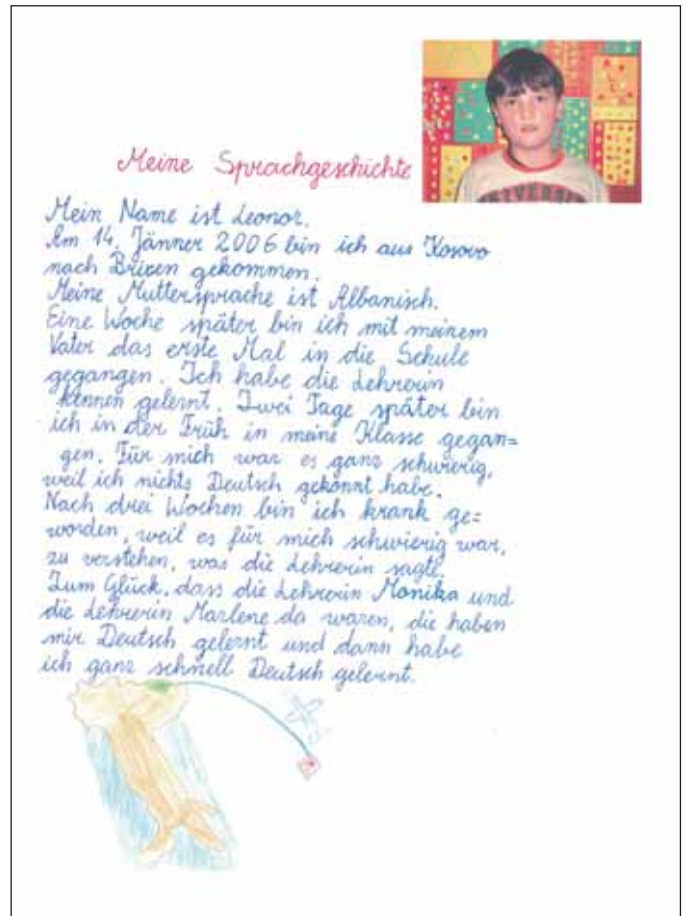 UNIVERSI
Meine Sprachgeschichte
Mein Name ist Leonor.
Am 14. Jänner 2006 bin ich aus Kosovo
nach Brixen gekommen.
Meine Muttersprache ist Albanisch.
Eine Woche später bin ich mit meinem
Vater das erste Mal in die Schule
gegangen. Ich habe die Lehrerin
kennen gelernt. Zwei Tage später bin
ich in der Früh in meine Klasse gegan=
gen. Für mich war es ganz schwierig,
weil ich nichts Deutsch gekonnt habe.
Nach drei Wochen bin ich krank ge=
worden, weil es für mich schwierig war,
zu verstehen, was die Lehrerin sagte.
Zum Glück, dass die Lehrerin Monika und
die Lehrerin Marlene da waren, die haben
mir Deutsch gelernt und dann habe
ich ganz schnell Deutsch gelernt.